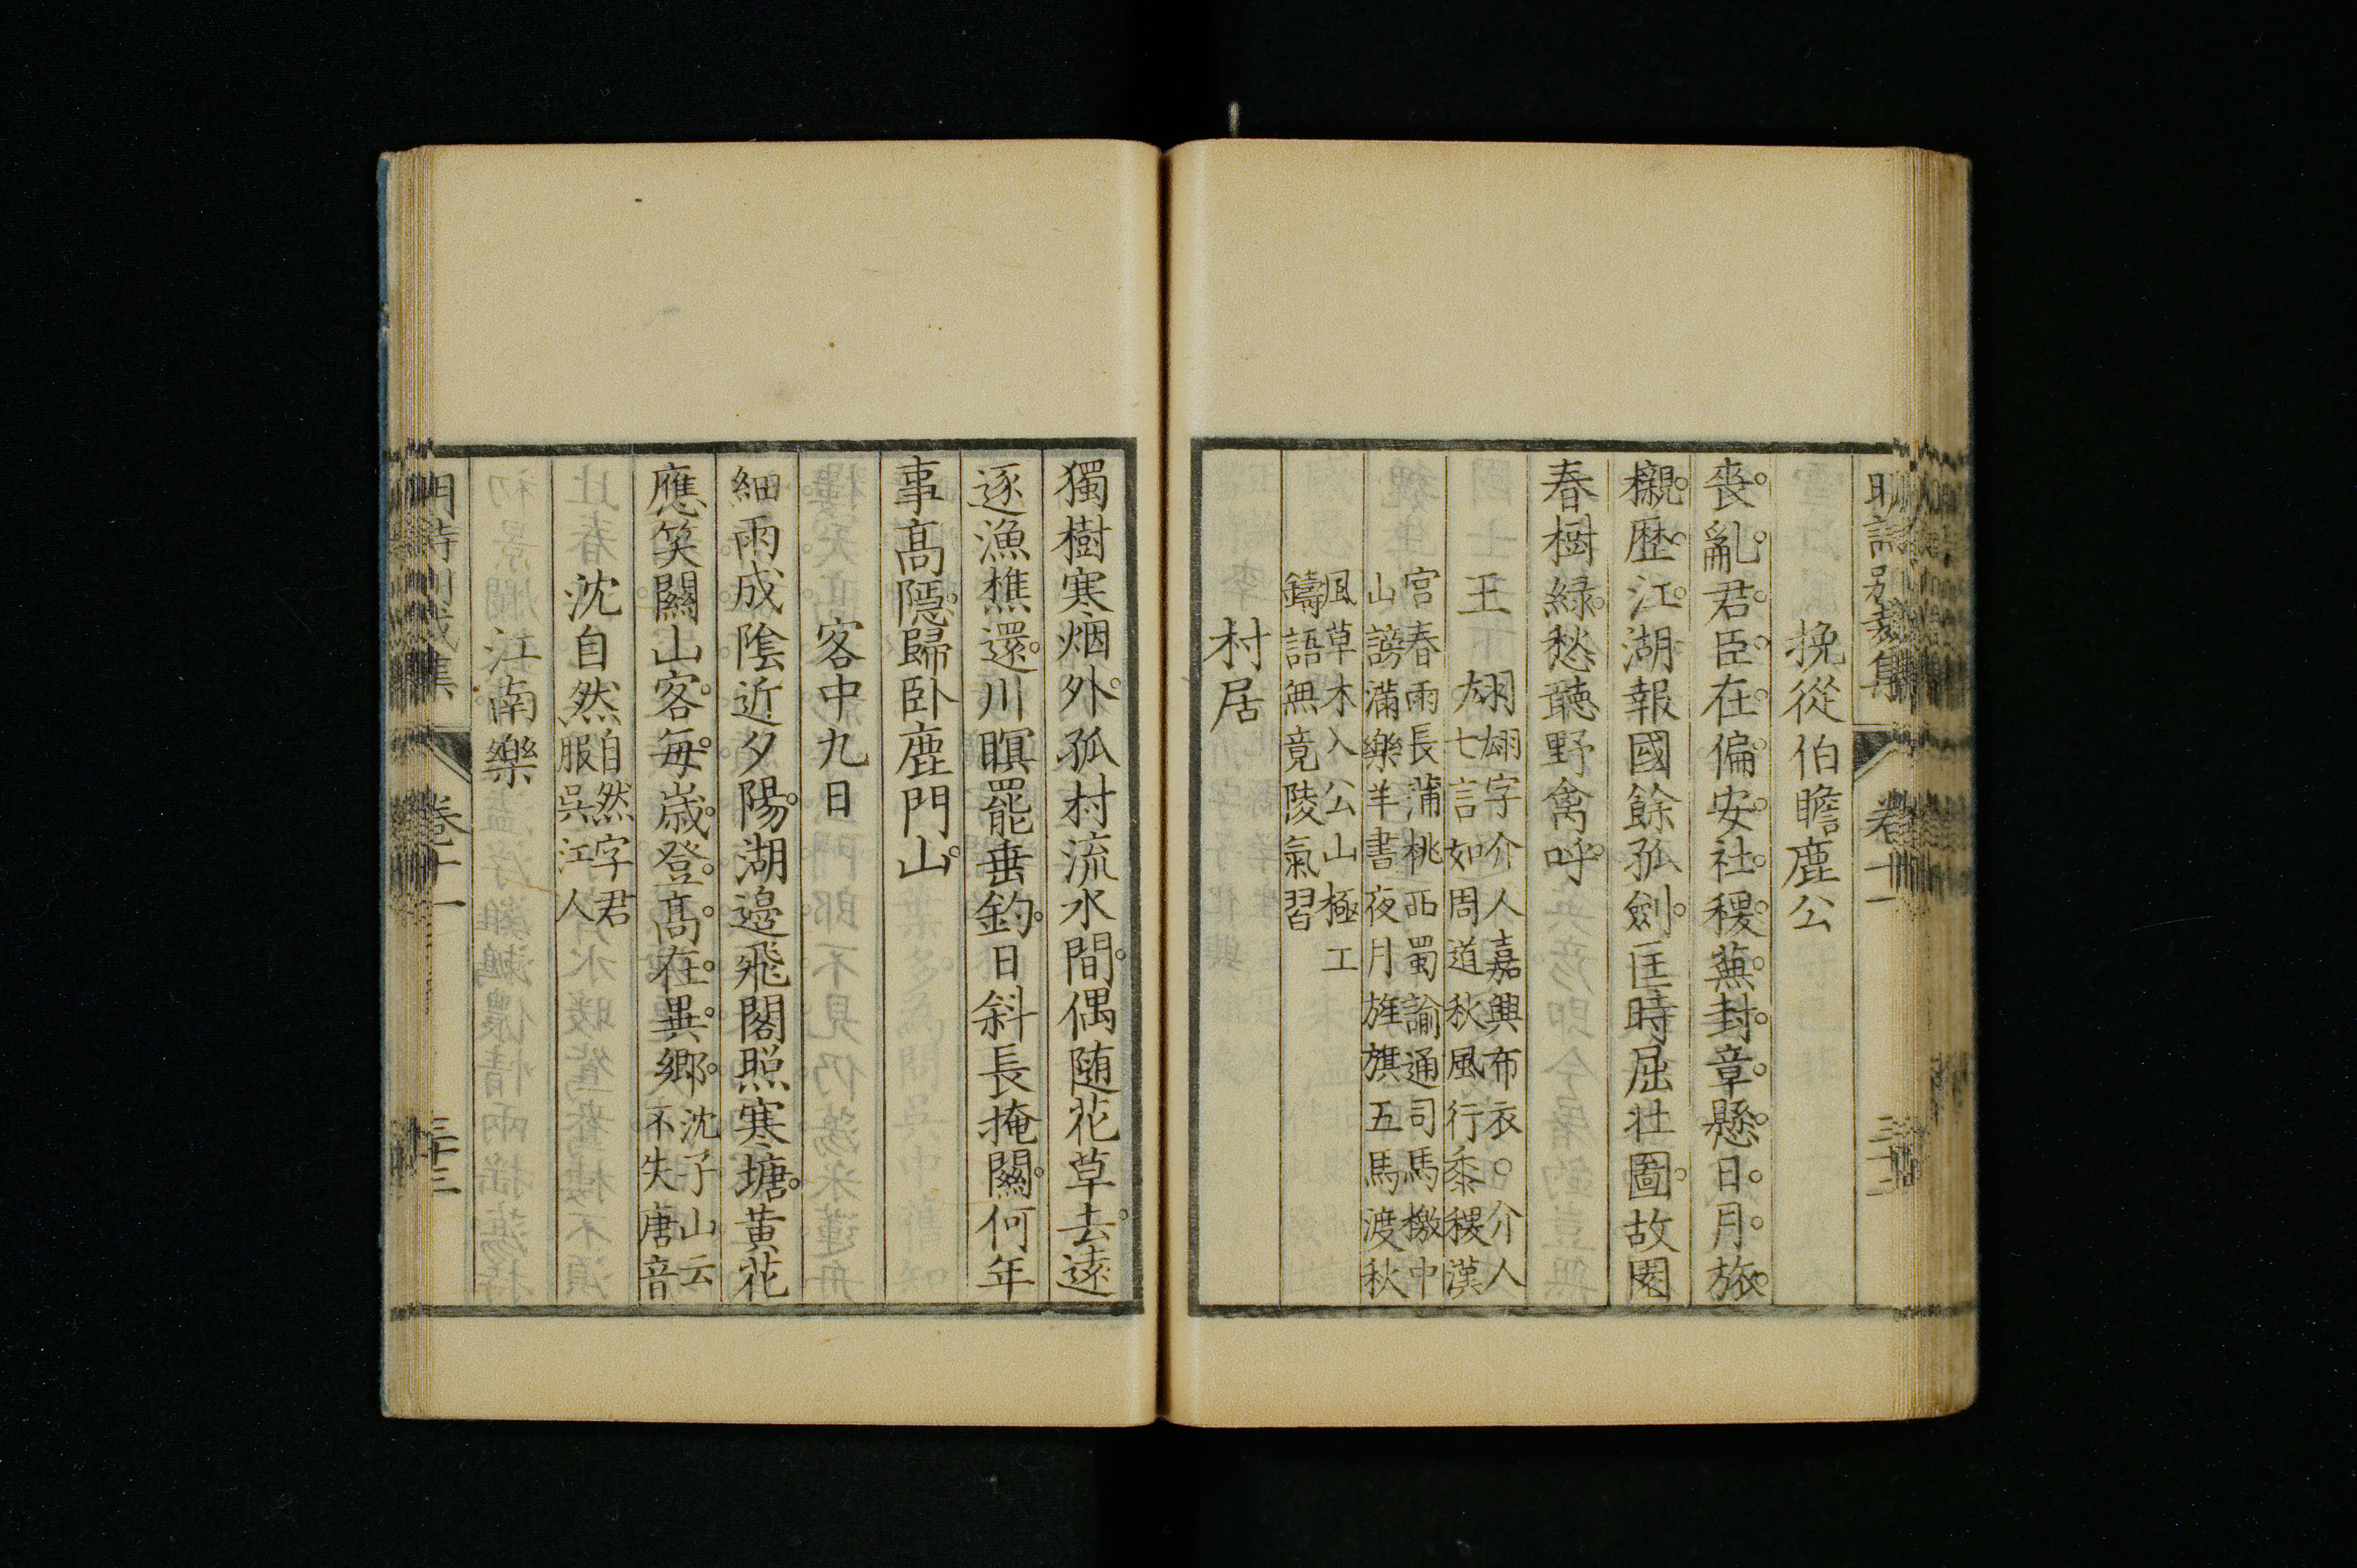 明詩別裁集 卷十一 三十二
挽從伯瞻鹿公
喪亂君臣在偏安社稷蕪封章懸日月旅
櫬歷江湖報國餘孤劍匡時屈壯圖故園
春樹綠愁聽野禽呼
王翃翃字介人嘉興布衣○介人
七言如周道秋風行黍稷漢
宮春雨長蒲桃西蜀諭通司馬檄中
山謗滿樂羊書夜月旌旗五馬渡秋
風草木入公山極工
鑄語無竟陵氣習
村居
獨樹寒烟外孤村流水間偶随花草去遠
逐漁樵還川暝罷垂釣日斜長掩關何年
事高隱歸卧鹿門山
客中九日
細雨成陰近夕陽湖邉飛閣照寒塘黃花
應笑關山客每歲登高在異鄉沈子山云
不失唐音
沈自然自然字君
服吳江人
江南樂
明詩別裁集 卷十一 三十三